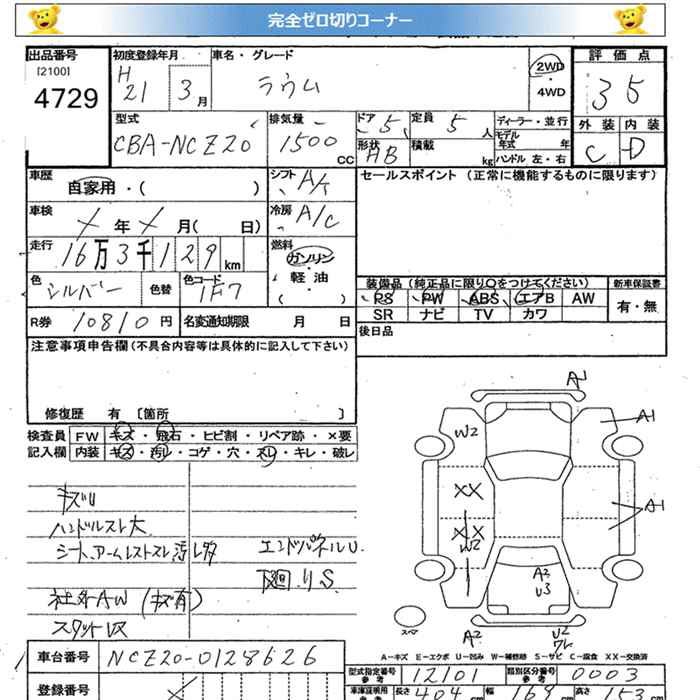 完全ゼロ切りコーナー
出品番号 初度登録年月 車名・グレード 2WD 評価点
[2100] H
4729 21 3月 ラウム ・4WD 35
型式 排気量 ドア 定員 ディーラー・並行 外装 内装
CBA-NCZ20 1500 CC 5 5人 モデル年式 年 C D
形状 HB 積載 kg ハンドル 左・右
車歴 自家用・( ) シフト A/T セールスポイント (正常に機能するものに限ります)
車検 年 月( 日) 冷房 A/C
走行 16万3千129km 燃料 ガソリン・軽油
( )
色 シルバー 色替 色コード 1F7 装備品(純正品に限り○をつけてください) 新車保証書
PS PW ABS エアB AW 有・無
SR ナビ TV カワ
R券 10810円 名変通知期限 月 日 後日品
注意事項申告欄(不具合内容等は具体的に記入して下さい)
修復歴 有 〔箇所 〕
検査員 FW キズ・飛石・ヒビ割・リペア跡・×要
記入欄 内装 キズ・汚レ・コゲ・穴・スレ・キレ・破レ
キズU
ハンドルスレ大
シート、アームレストスレ汚レ
エンドパネルU
下廻りS
社外AW (キズ有)
A1
W2
A1
XX
A1
XX
W2
A2
U3
スペア
A2
U2
ワレ
A-キズ E-エクボ U-凹み W-補修跡 S-サビ C-腐食 XX-交換済
車台番号 NCZ20-0128626
型式指定番号 参考 12101 類別区分番号 参考 0003
登録番号
車庫証明用 長さ 404 cm 幅 169 高さ